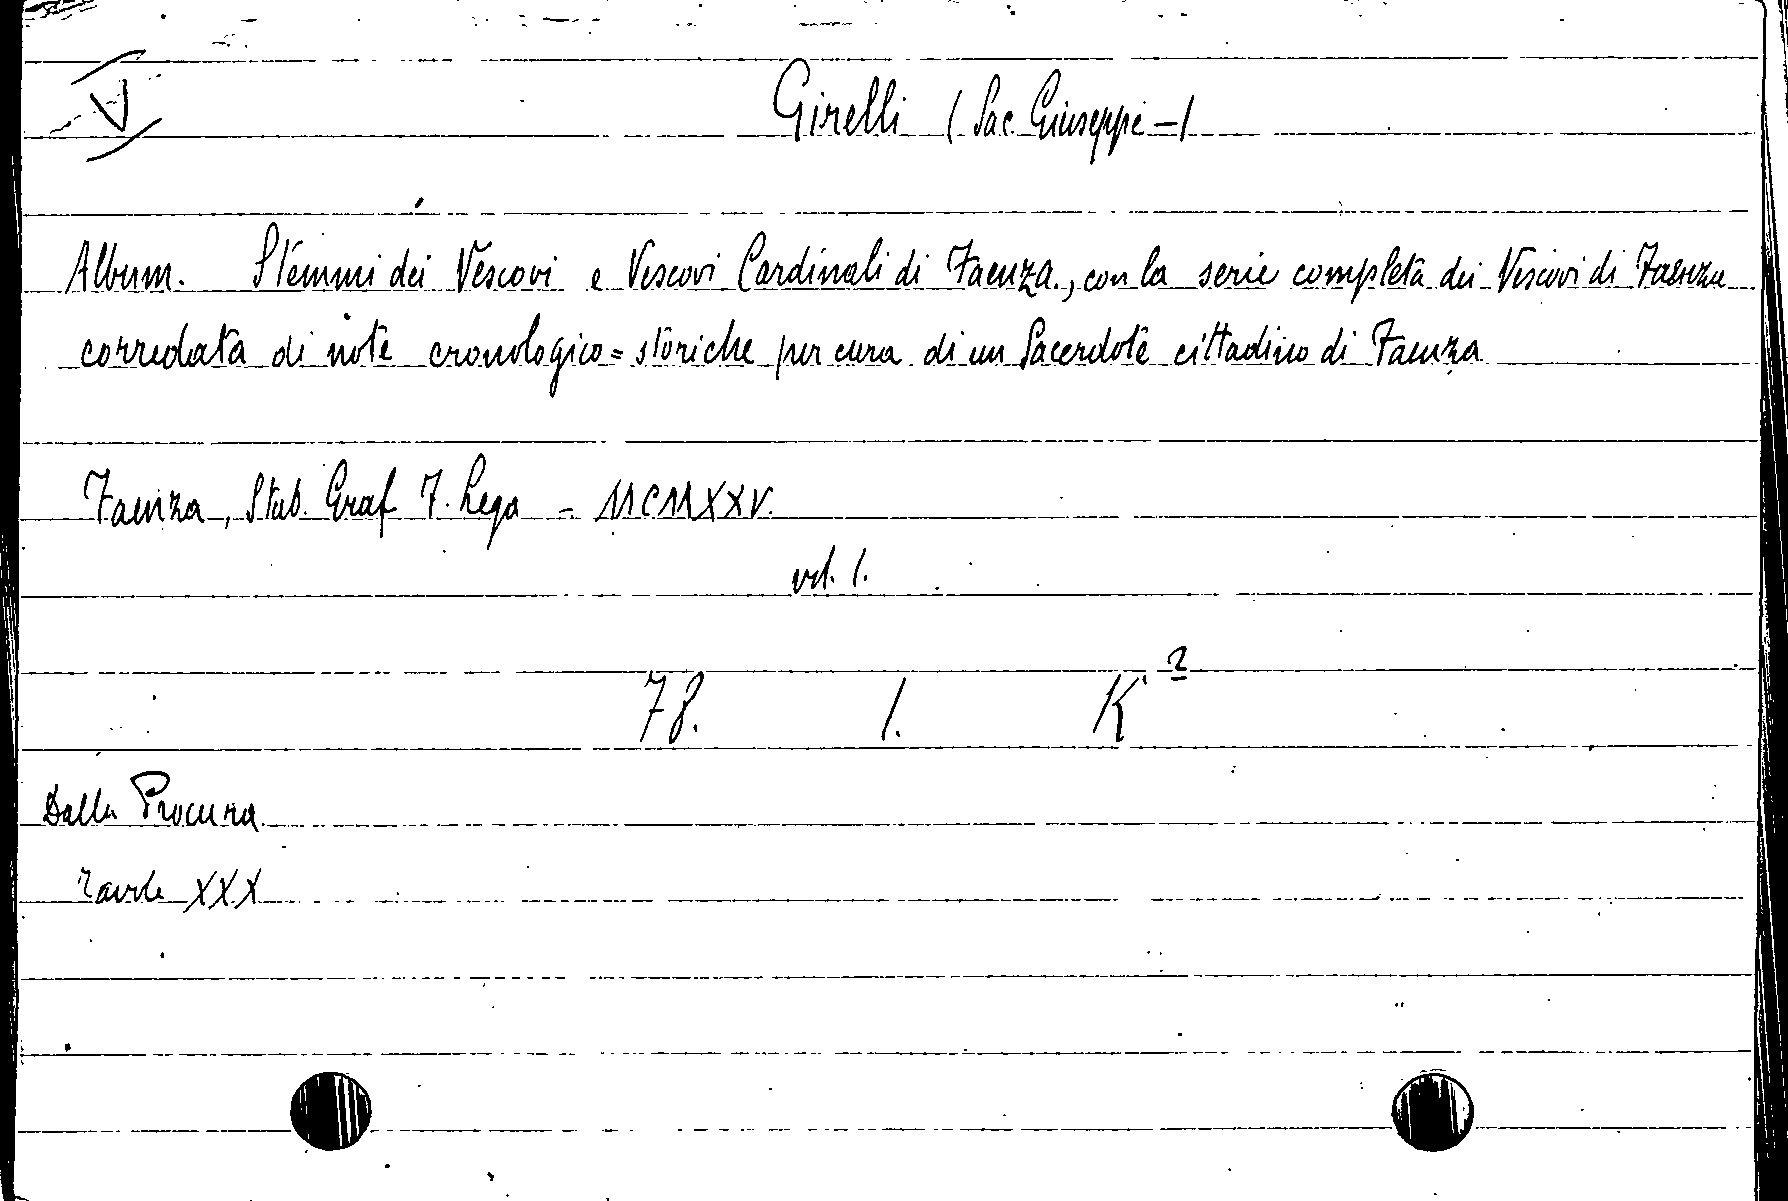 V
Girelli (Sac. Giuseppe -)
Album. Stemmi dei Vescovi e Vescovi Cardinali di Faenza., con la serie completa dei Vescovi di Faenza
corredata di note cronologico=storiche per cura di un Sacerdote cittadino di Faenza
Faenza, Stab. Graf F. Lega - MCMXXV.
vol. 1.
78. 1. K 2
Dalla Procura
tavole XXX